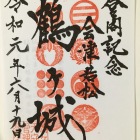 登閣記念
会津若松
鶴ヶ城
令和元年八月九日